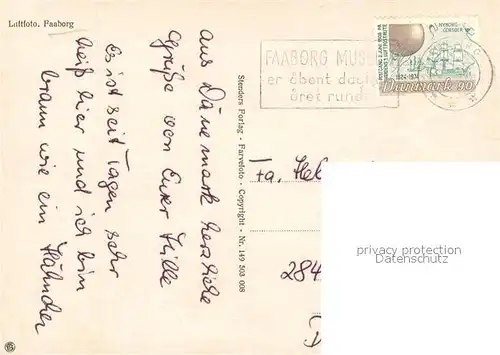 Luftfoto. Faaborg
Aus Dänemark herzliche
Grüße von Eurer Hille
Es ist seit Tagen sehr
heiß hier und ich bin
braun wie ein Hähnchen
Stenders Forlag - Farvefoto - Copyright - Nr. 149 503 008
FAABORG MUSEUM
er åbent
året rundt
NYBORG-
CORSØER
1824-1974
Danmark 90
Fa. Hel
284
privacy protection
Datenschutz